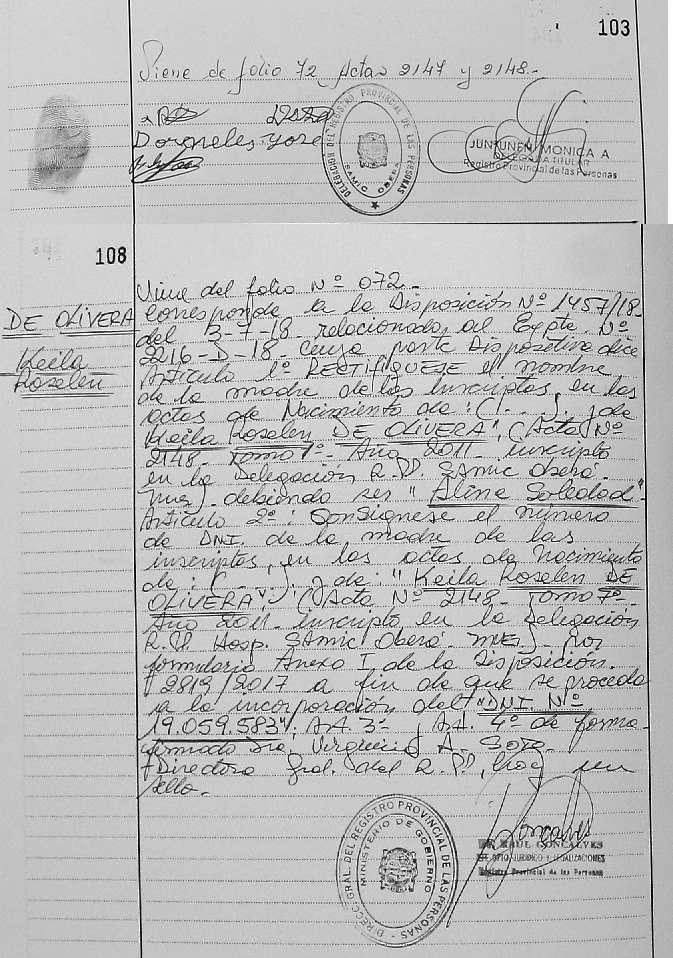 103
Viene de folio 72 Actas 2147 y 2148.-
Dorneles Jose
DELEGACION DEL REGISTRO PROVINCIAL DE LAS PERSONAS
SAMIC OBERA
JUNTUNEN MONICA A
DELEGADA TITULAR
Registro Provincial de las Personas
108
DE OLIVERA
Keila
Roselen
Viene del folio Nº 072.-
Corresponde a la Disposición Nº 1457/18-
del 3-7-18 relacionada al Expte. Nº
2216-D-18- Cuya parte Dispositiva dice
Artículo 1º RECTIFIQUESE el nombre
de la madre de las inscriptas, en las
actas de Nacimiento de: (...) y de
Keila Roselen DE OLIVERA", (Acta Nº
2148- Tomo 7º- Año 2011- inscripto
en la Delegación R.P. SAMIC Oberá-
Mnes) debiendo ser "Aline Soledad"-
Artículo 2º- Consignese el número
de DNI. de la madre de las
inscriptas, en las actas de Nacimiento
de: (...) y de: "Keila Roselen DE
OLIVERA", (Acta Nº 2148- Tomo 7º-
Año 2011- inscripto en la Delegación
R.P. Hosp. SAMIC Oberá- Mnes) por
formulario Anexo I, de la Disposición
2819/2017 a fin de que se proceda
a la incorporación del "DNI. Nº
19.059.583". Art. 3º- Art. 4º de forma-
firmado Dra. Virginia A. Soto-
Directora Gral. del R.P., hay un
sello.-
DIRECC. GRAL. DEL REGISTRO PROVINCIAL DE LAS PERSONAS
MINISTERIO DE GOBIERNO
Goncalves
RAUL GONCALVES
DPTO. JURIDICO Y LEGALIZACIONES
Registro Provincial de las Personas